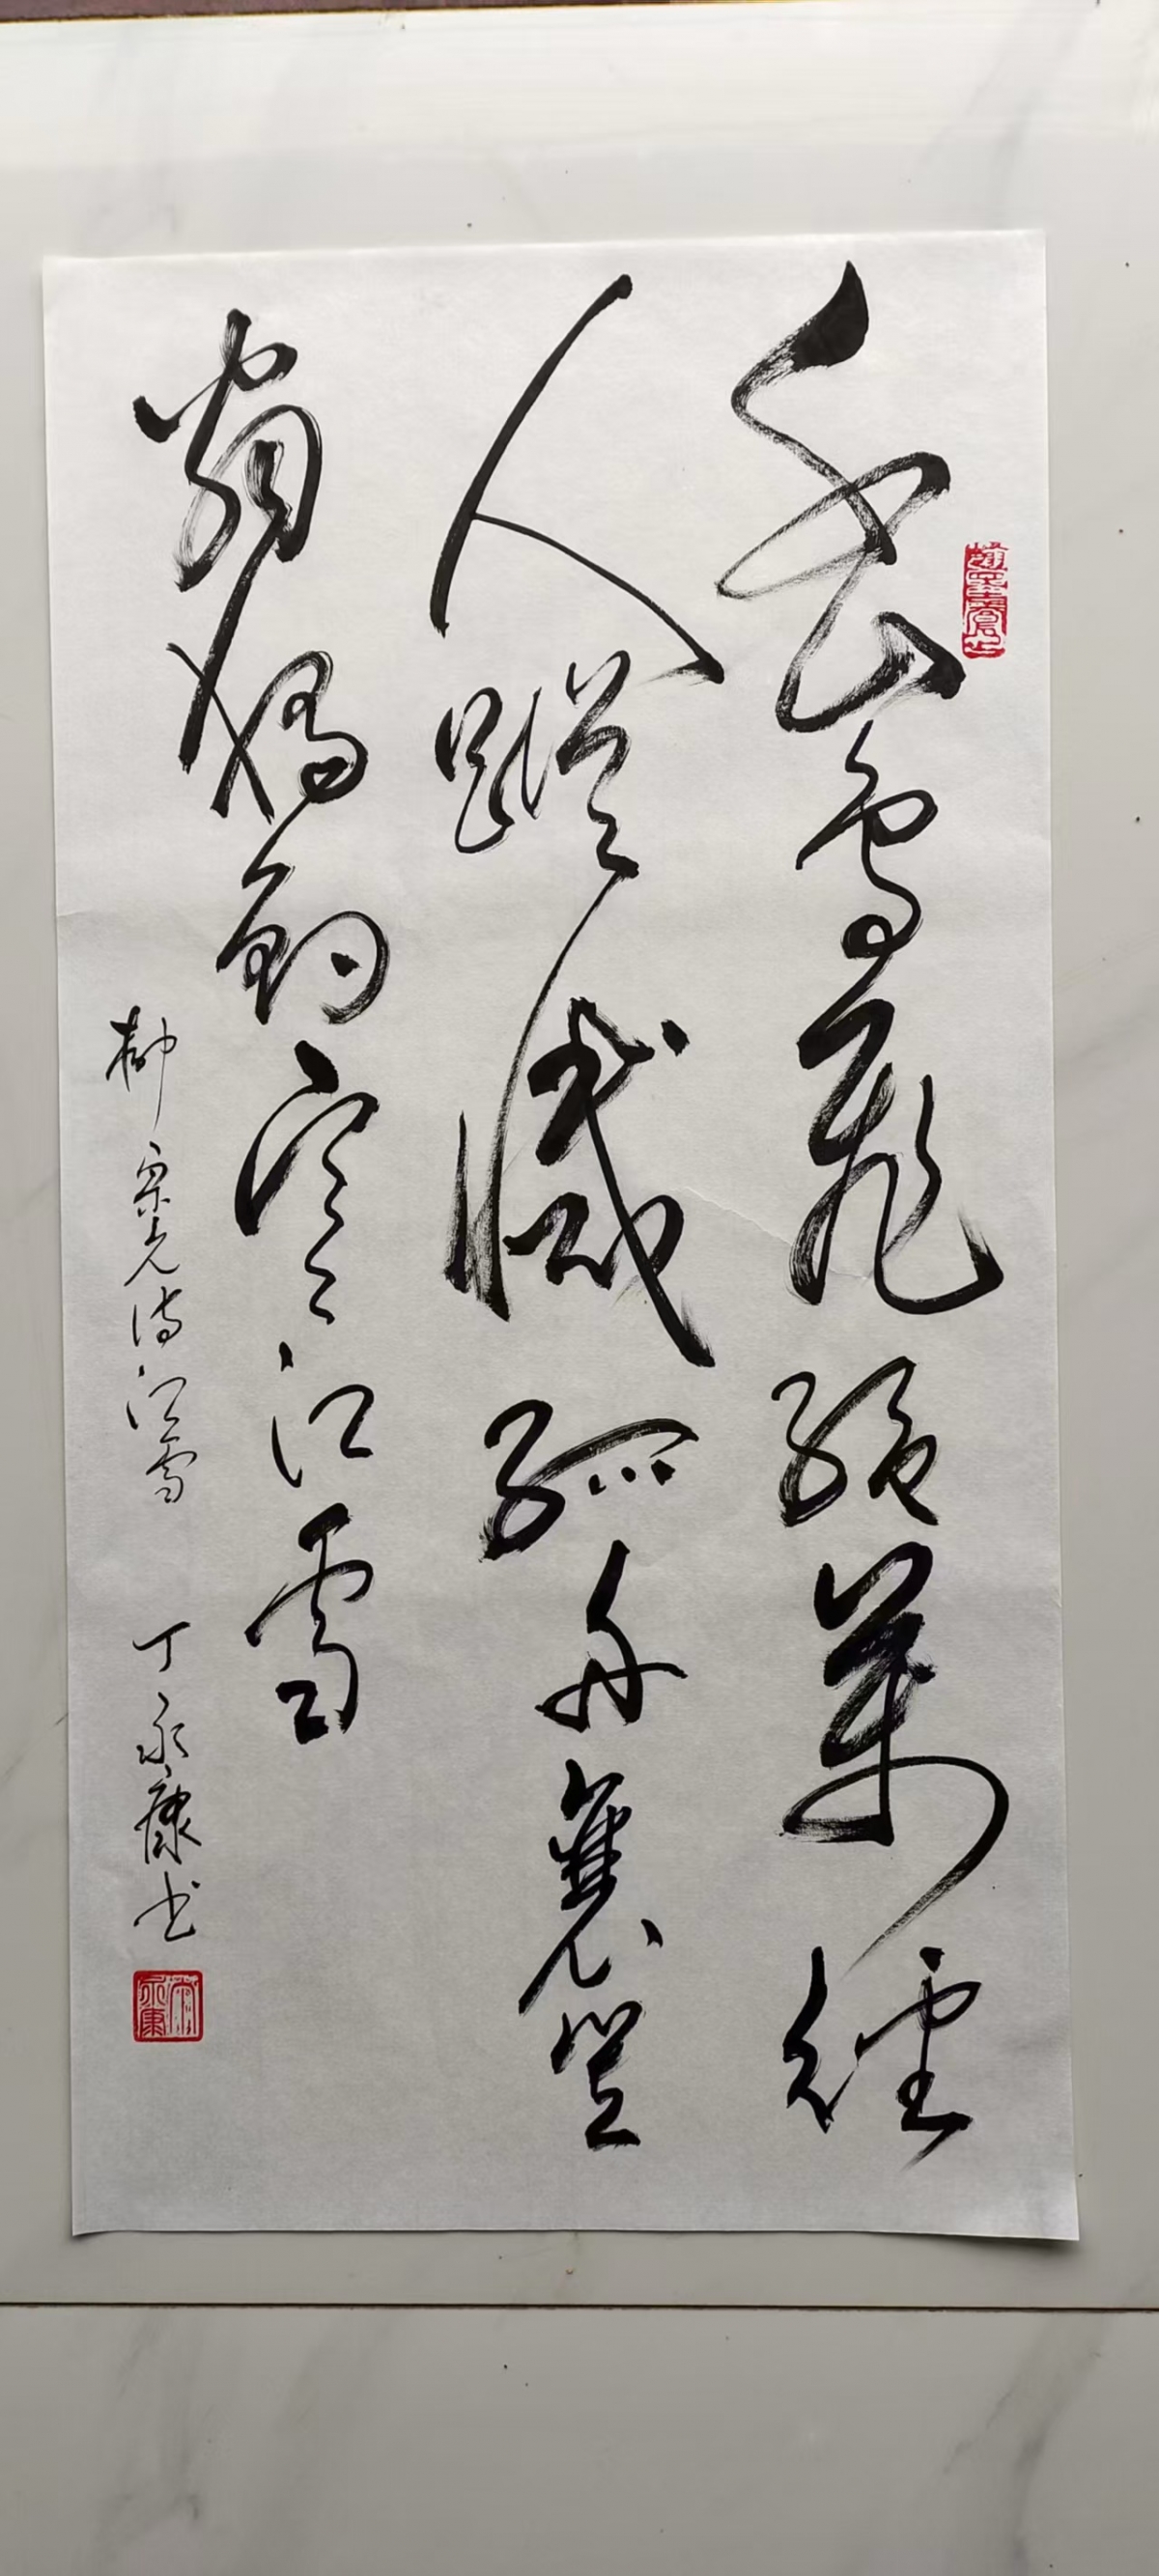 千山鸟飛绝萬径
人蹤滅孤舟蓑笠
翁獨釣寒江雪
柳宗元诗江雪 丁永康书